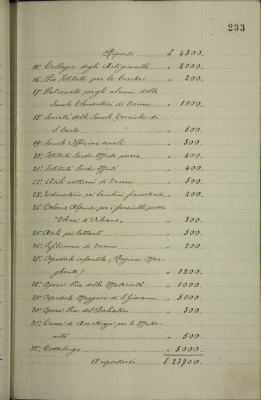 233
Riporti £ 4300.
15° Collegio degli Artigianelli " 2000.
16° Pio Istituto per le Cieche " 200.
17° Patronato per gli alunni delle
Scuole Elementari di Torino " 1000.
18° Società delle Scuole Tecniche di
S. Carlo " 500.
19° Scuole Officine serali " 300.
20° Istituto Sordo-Mute povere " 400.
21° Istituto Sordo-Muti " 400.
22° Asilo notturni di Torino " 300.
23° " 200.
24° Colonia Alpina per i fanciulli poveri
"Elena d'Orleans" " 200.
25° Asilo per lattanti " 300.
26° di Torino " 200.
27° Ospedale infantile (Regina Mar-
gherita) " 1200.
28° Opera Pia della Maternità " 1000.
29° Ospedale Maggiore di S. Giovanni " 5000
30° Opera Pia del " 300.
31° Cassa di per le Mater-
nità " 500.
32° Cottolengo " 5000.
A riportarsi £ 23700.